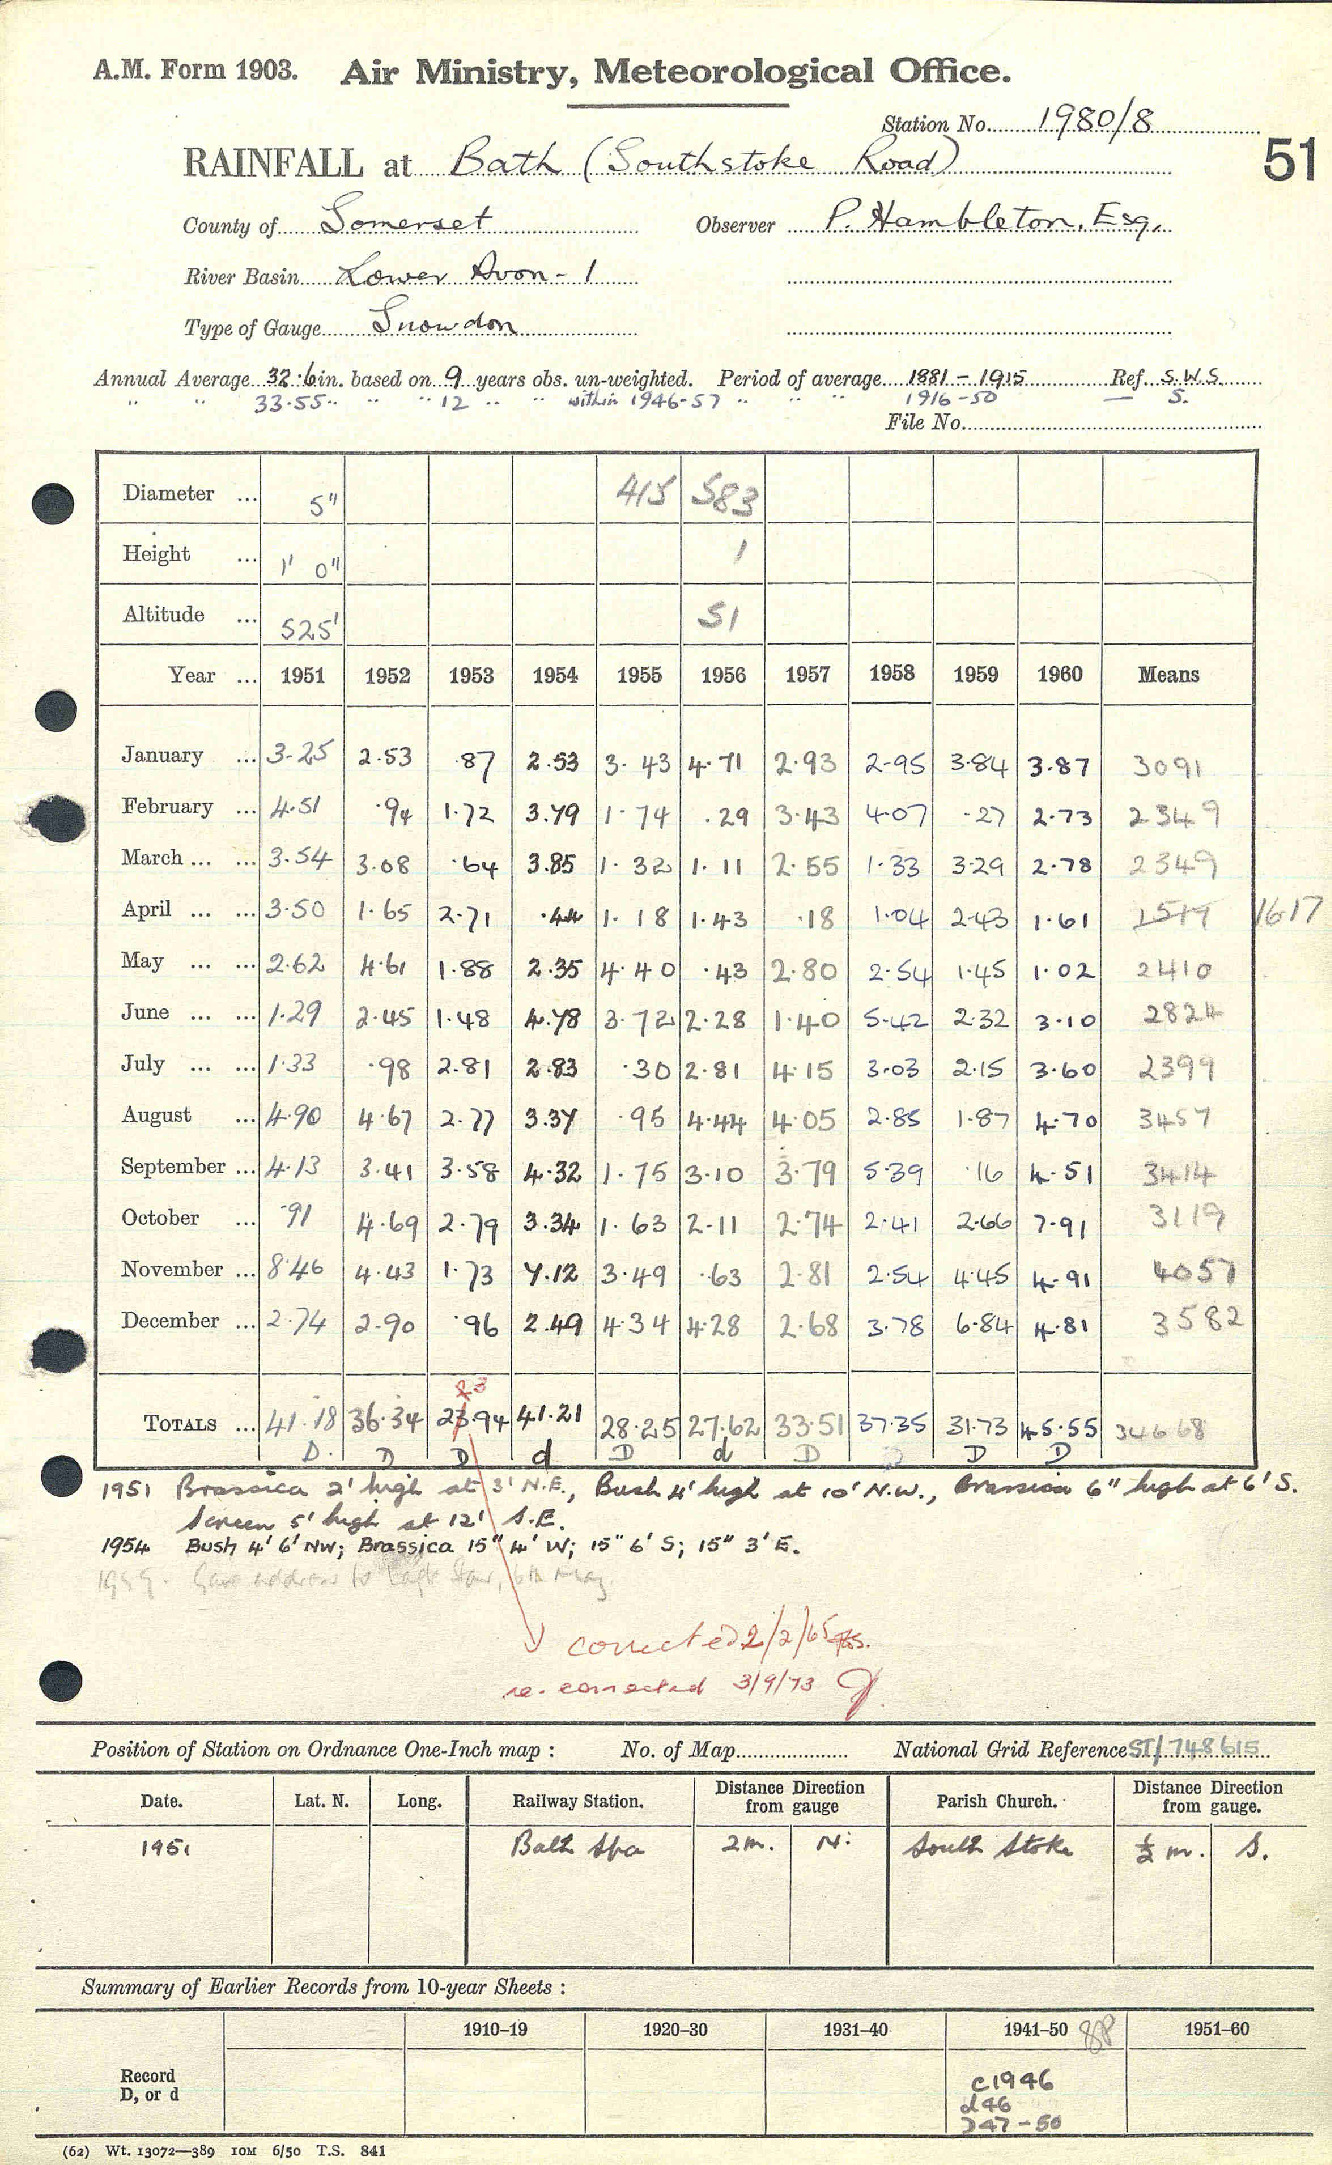 A.M. Form 1903. Air Ministry, Meteorological Office.
Station No. 1980/8
51
RAINFALL at Bath (Southstoke Road)
County of Somerset Observer P. Hambleton, Esq.
River Basin Lower Avon - 1
Type of Gauge Snowdon
Annual Average 32.6 in. based on 9 years obs. un-weighted. Period of average 1881 - 1915 Ref. S.W.S.
" " 33.55 " " " 12 " " within 1946-57 " " " 1916-50 — S.
File No.
Diameter ... 5" 415 583
Height ... 1' 0" 1
Altitude ... 525' 51
Year ... 1951 1952 1953 1954 1955 1956 1957 1958 1959 1960 Means
January ... 3.25 2.53 .87 2.53 3.43 4.71 2.93 2.95 3.84 3.87 3091
February ... 4.51 .94 1.72 3.79 1.74 .29 3.43 4.07 .27 2.73 2349
March ... ... 3.54 3.08 .64 3.85 1.32 1.11 2.55 1.33 3.29 2.78 2349
April ... ... 3.50 1.65 2.71 .44 1.18 1.43 .18 1.04 2.43 1.61 1517 1617
May ... ... 2.62 4.61 1.88 2.35 4.40 .43 2.80 2.54 1.45 1.02 2410
June ... ... 1.29 2.45 1.48 4.78 3.72 2.28 1.40 5.42 2.32 3.10 2824
July ... ... 1.33 .98 2.81 2.83 .30 2.81 4.15 3.03 2.15 3.60 2399
August ... 4.90 4.67 2.77 3.37 .95 4.44 4.05 2.85 1.87 4.70 3457
September ... 4.13 3.41 3.58 4.32 1.75 3.10 3.79 5.39 .16 4.51 3414
October ... .91 4.69 2.79 3.34 1.63 2.11 2.74 2.41 2.66 7.91 3119
November ... 8.46 4.43 1.73 7.12 3.49 .63 2.81 2.54 4.45 4.91 4057
December ... 2.74 2.90 .96 2.49 4.34 4.28 2.68 3.78 6.84 4.81 3582
TOTALS ... 41.18 36.34 23.94 41.21 28.25 27.62 33.51 37.35 31.73 45.55 34668
D. D D d D d D D D D
1951 Brassica 2' high at 3' N.E., Bush 4' high at 10' N.W., Brassica 6" high at 6' S.
Screen 5' high at 12' S.E.
1954 Bush 4' 6' NW; Brassica 15" 4' W; 15" 6' S; 15" 3' E.
corrected 2/2/65
re-corrected 3/9/73
Position of Station on Ordnance One-Inch map : No. of Map National Grid Reference ST/748615
Date. Lat. N. Long. Railway Station. Distance Direction from gauge Parish Church. Distance Direction from gauge.
1951 Bath Spa 2m. N. South Stoke ½ m. S.
Summary of Earlier Records from 10-year Sheets :
1910–19 1920–30 1931–40 1941–50 1951–60
Record
D, or d
c1946
d46
D47-50
(62) Wt. 13072—389 10M 6/50 T.S. 841